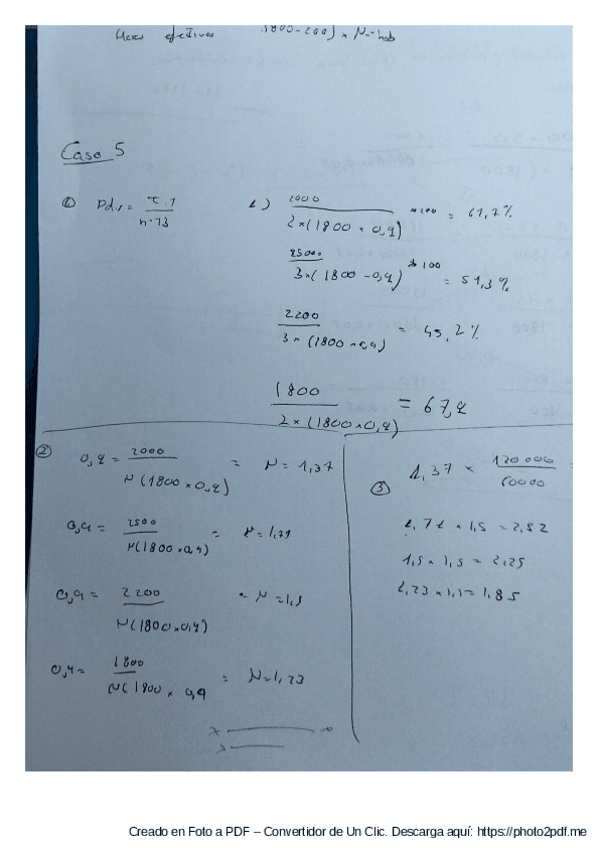 Horas efectivas (1800-200) × N-hab
Caso 5
① Pdr = T.1 / n.73
2000 / 2×(1800 × 0,9) × 100 = 61,7%
2500 / 3×(1800 - 0,9) × 100 = 51,3%
2200 / 3×(1800×0,9) = 45,2%
1800 / 2×(1800×0,9) = 67,2
②
0,9 = 2000 / N(1800×0,9) = N = 1,37
0,9 = 2500 / N(1800×0,9) = N = 1,71
0,9 = 2200 / N(1800×0,9) = N = 1,5
0,9 = 1800 / N(1800 × 0,9 = N = 1,23
③
1,37 × 120000 / 80000 =
1,71 × 1,5 = 2,52
1,5 × 1,5 = 2,25
1,23 × 1,5 = 1,85
Creado en Foto a PDF – Convertidor de Un Clic. Descarga aquí: https://photo2pdf.me